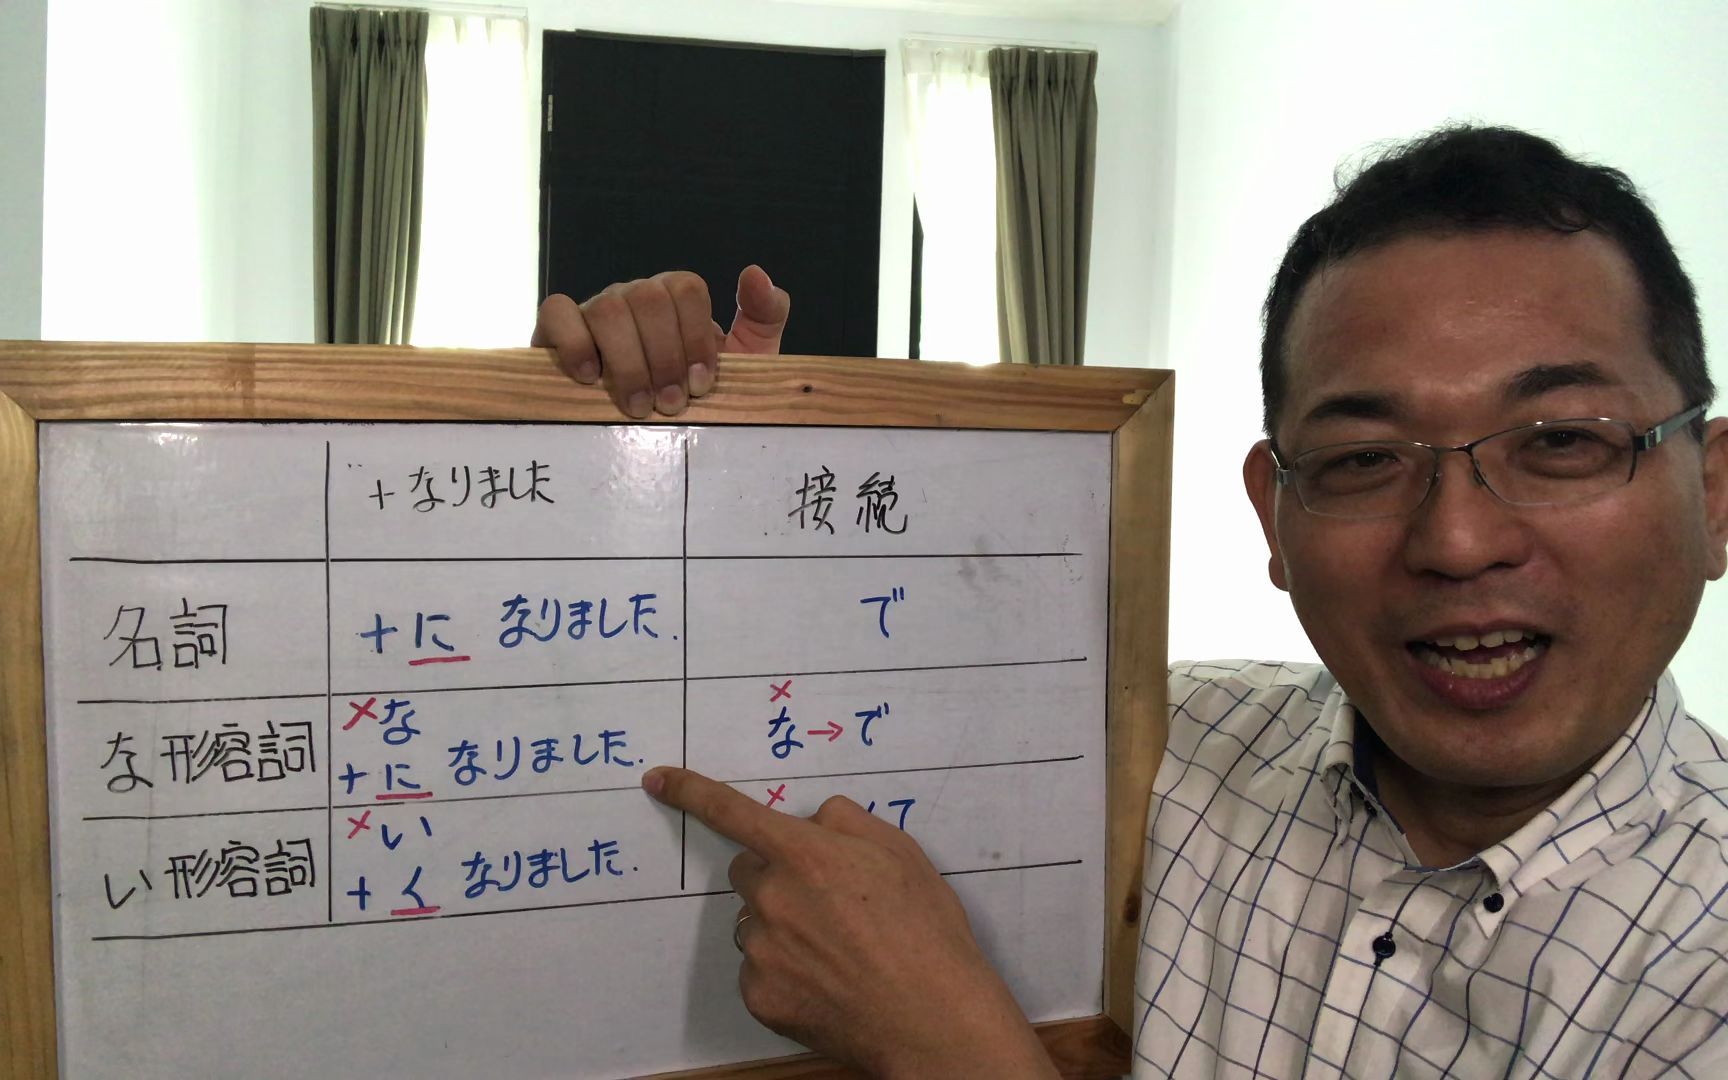 +なりました
接続
名詞
+に なりました.
で
な形容詞
×な
+に なりました.
×
な→で
い形容詞
×い
+く なりました.
×
て